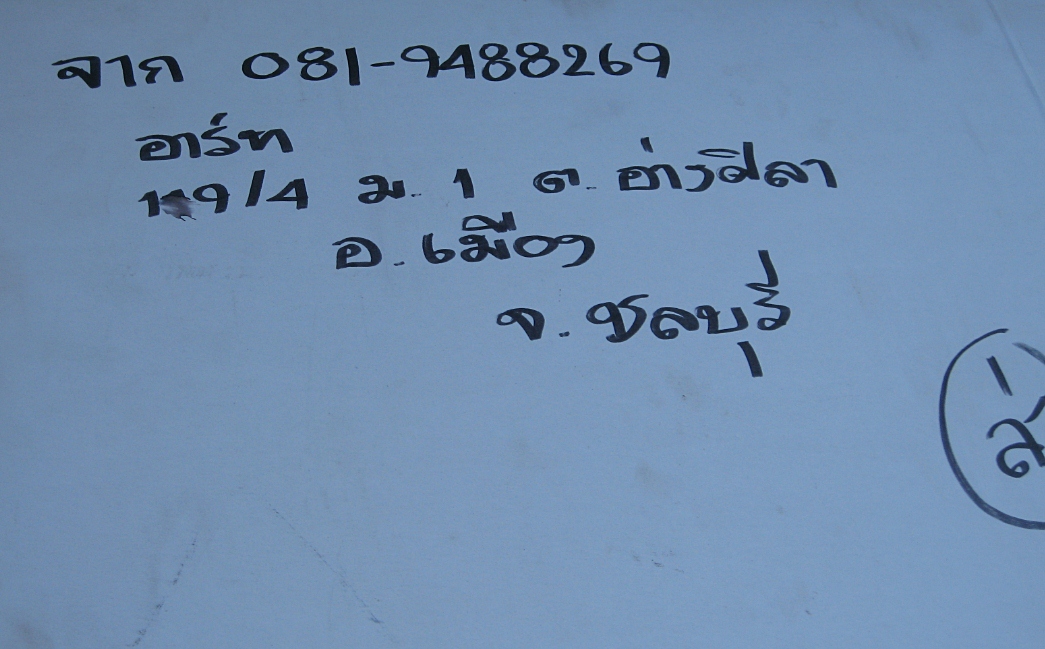 จาก 081-9488269
อาร์ท
119/4 ม. 1 ต. อ่างศิลา
อ. เมือง
จ. ชลบุรี